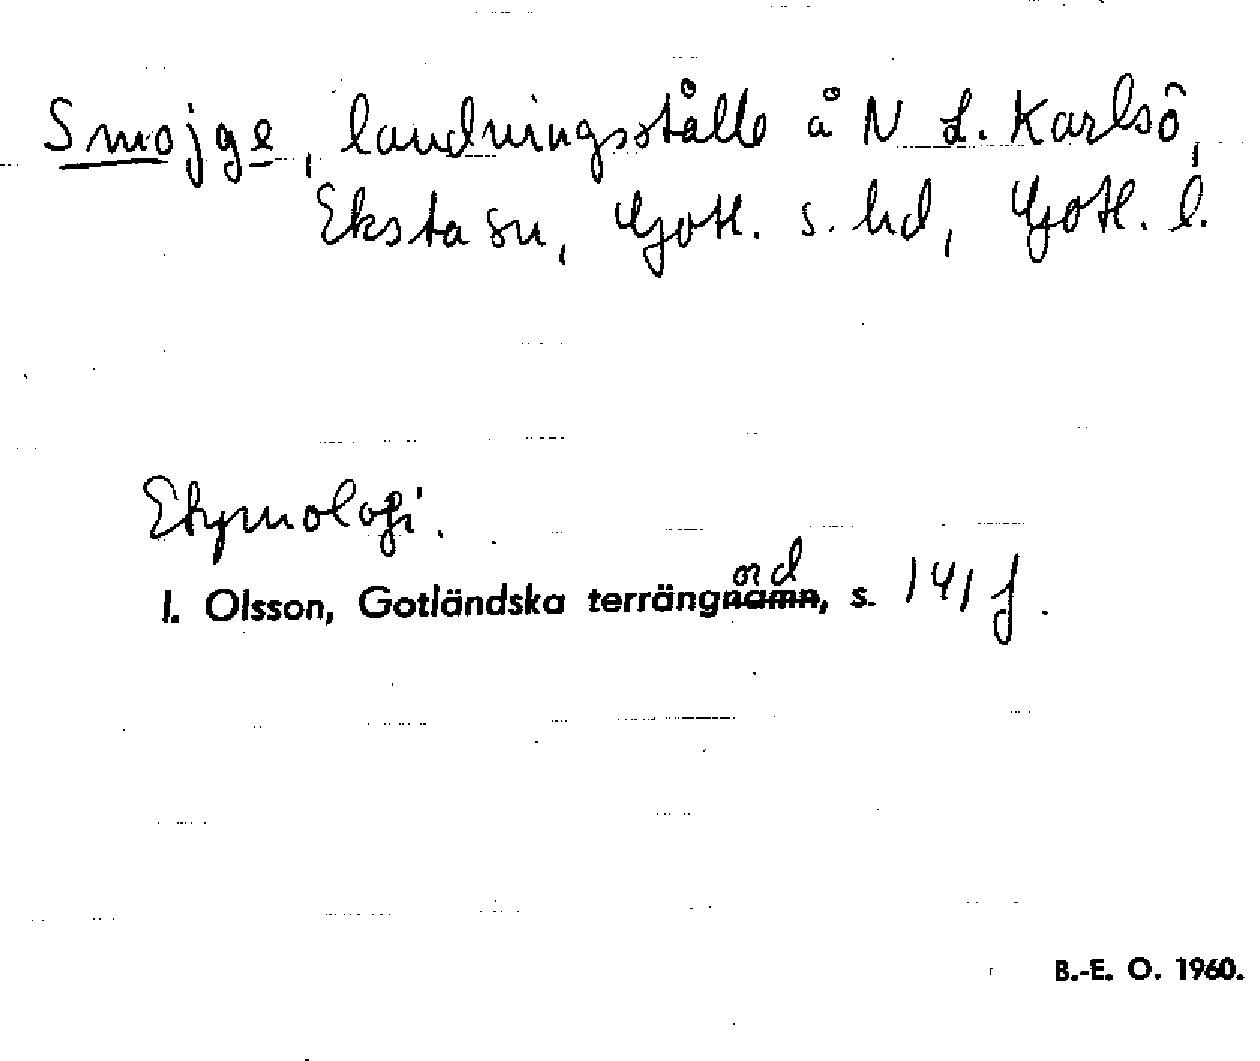 Smojge, landningsställe å N L. Karlsö,
Eksta sn, Gotl. s. hd, Gotl. l.
Etymologi.
I. Olsson, Gotländska terrängord, s. 141 f.
B.-E. O. 1960.